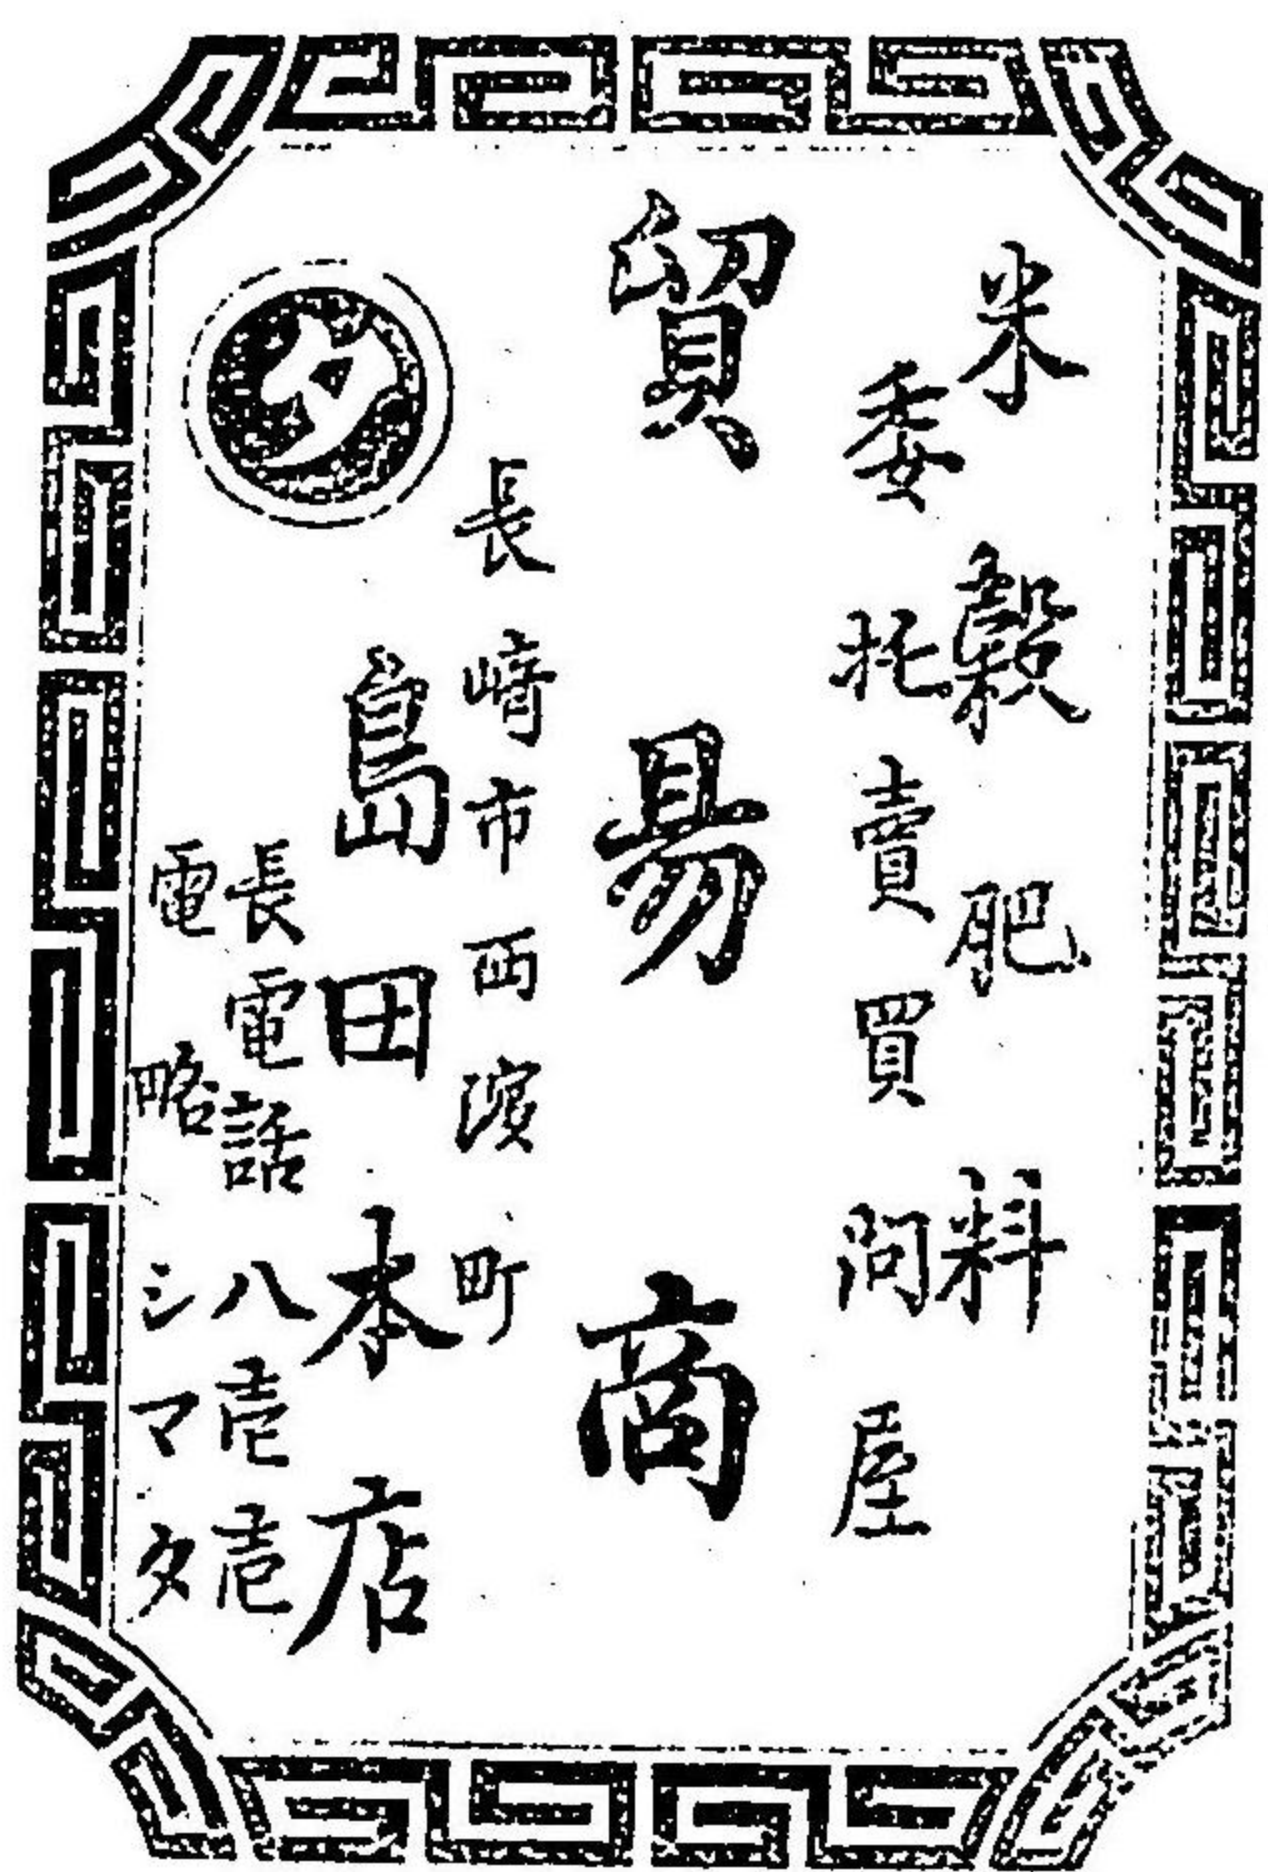 米穀肥料
委托賣買問屋
貿易商
長崎市西濵町
島田本店
長電話八壱壱
電略シマタ
タ